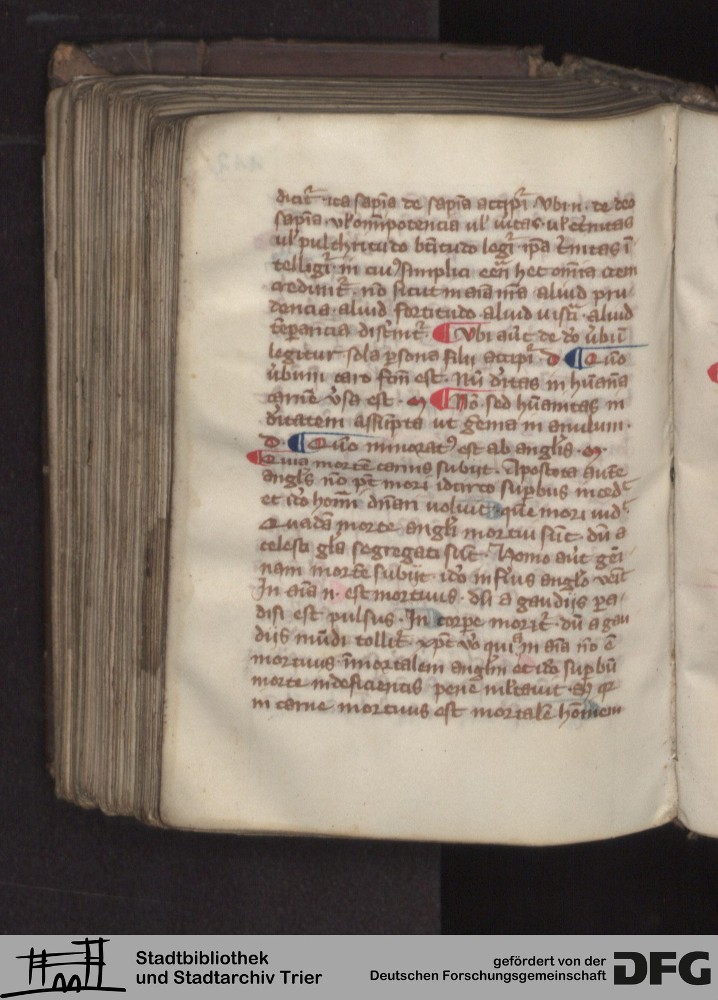 dicit᷒ ita sapīa de sapīa accipi᷒ Vbi n̄ de deo
sapīa vl' omīpotencia ul' ūitas ul' et̄nitas
ul' pulchritudo bt̄itudo logi᷒ ip̄a t̄nitas ī
telligi᷒ in cuiꝰ simplici eēn hec om̄ia idem
credunt᷒ nō sicut in aīa nr̄a aliud pru
dencia aliud fortitudo aliud iusti᷒ aliud
tēperancia disc̄nit᷒ ¶ Vbi aūt de do ūbū
legitur sola ꝑsona filii accipi᷒ d ¶ Quō
ūbum caro fcm̄ est Nū d'itas in hūana
carne v̄sa est m ¶ Nō sed hūanitas in
d'itatem assūpta ut gema in anulum
d ¶ Quō minoratꝰ est ab angl'is m
Quia mortē carnis subijt Apostota aūte
angl's nō pt̄ mori idcirco suꝑbus inced᷒
et ido hom̄i dn̄ari voluit quē mori vid᷒
Quadā morte angl'i mortui sūt dū a
celesti gl'a segregati sūt Homo aūt gēi
nam mortē subijt ido infi᷒us anglo venit
In aīa n̄ est mortuus dū a gaudijs pa
disi est pulsus In corpe morit᷒ dū a gau
dijs mūdi tollit᷒ xp̄c vo quia in aīa nō ē
mortuus īmortalem angl'm et ido suꝑbū
morte indeficientis pene mltauit
in carne mortuus est mortalē hominem
Stadtbibliothek
und Stadtarchiv Trier
gefördert von der
Deutschen Forschungsgemeinschaft
DFG